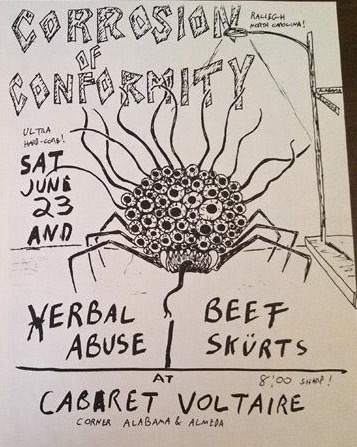 CORROSION
OF
CONFORMITY
RALIEGH
NORTH CAROLINA!
ULTRA
HARD-CORE!
SAT
JUNE
23
AND
VERBAL
ABUSE
BEEF
SKÜRTS
AT
8:00 SHARP!
CABARET VOLTAIRE
CORNER ALABAMA & ALMEDA